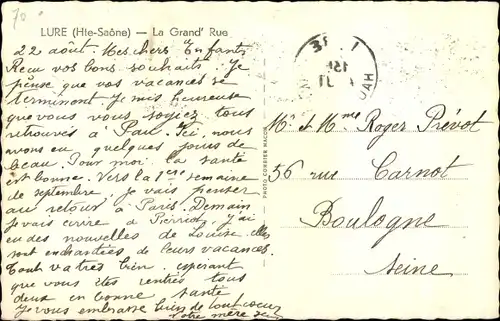 LURE (Hte-Saône) — La Grand' Rue
22 août. Mes chers Enfants
Reçu vos bons souhaits. Je
pense que vos vacances se
terminent Je suis heureuse
que vous vous soyiez tous
retrouvés à Pau. Ici, nous
avons eu quelques jours de
beau. Pour moi la santé
est bonne. Vers la 1ère semaine
de septembre je vais penser
au retour à Paris. Demain
Je vais écrire à Pierrot, j'ai
eu des nouvelles de Louise. elles
sont enchantées de leurs vacances.
Tout va très bien. espérant
que vous êtes rentrés tous
deux en bonne santé
Je vous embrasse bien de tout coeur
votre mère
PHOTO COMBIER MACON
Mr et Mme Roger Prévot
56 rue Carnot
Boulogne
Seine